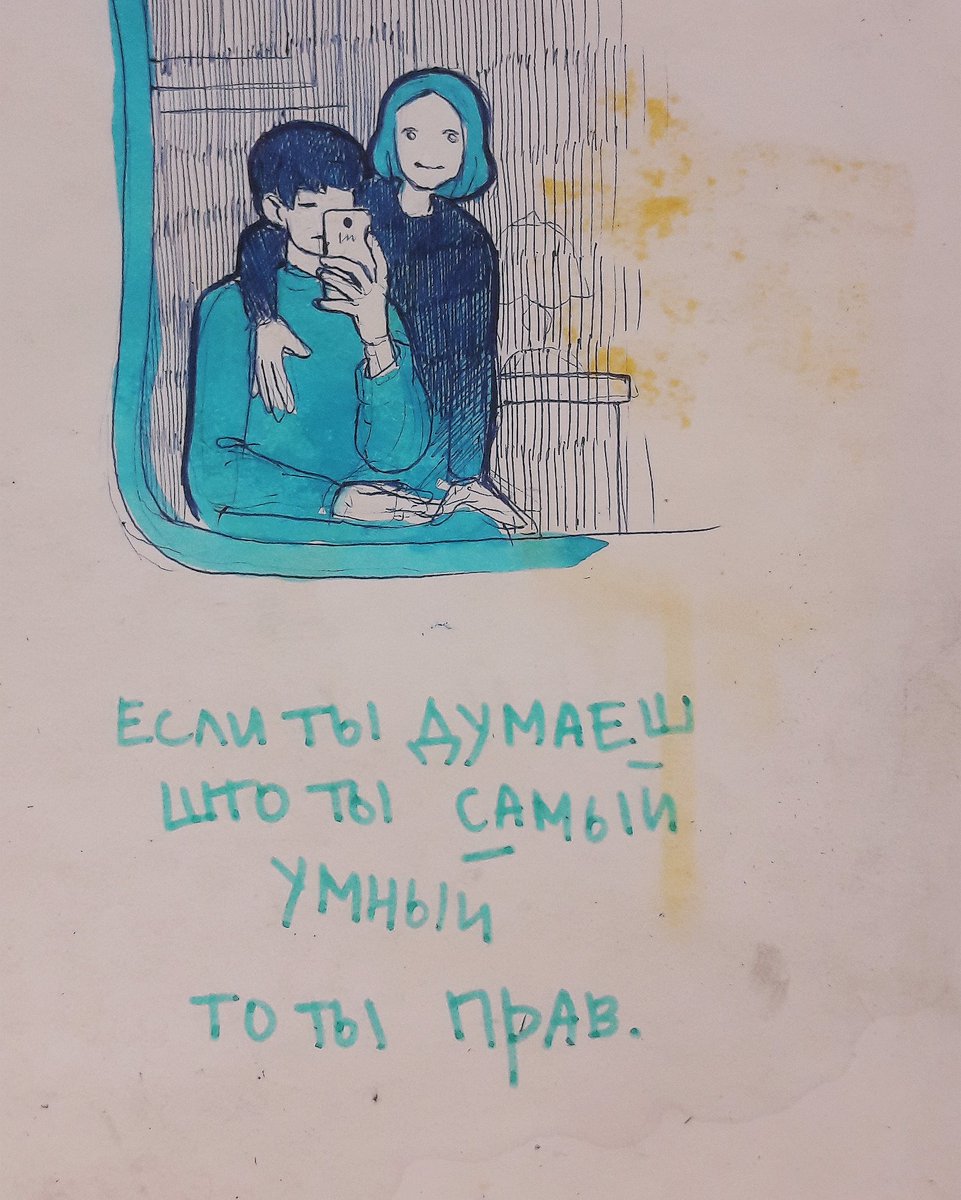 ЕСЛИ ТЫ ДУМАЕШ
ШТО ТЫ САМЫЙ
УМНЫЙ
ТО ТЫ ПРАВ.